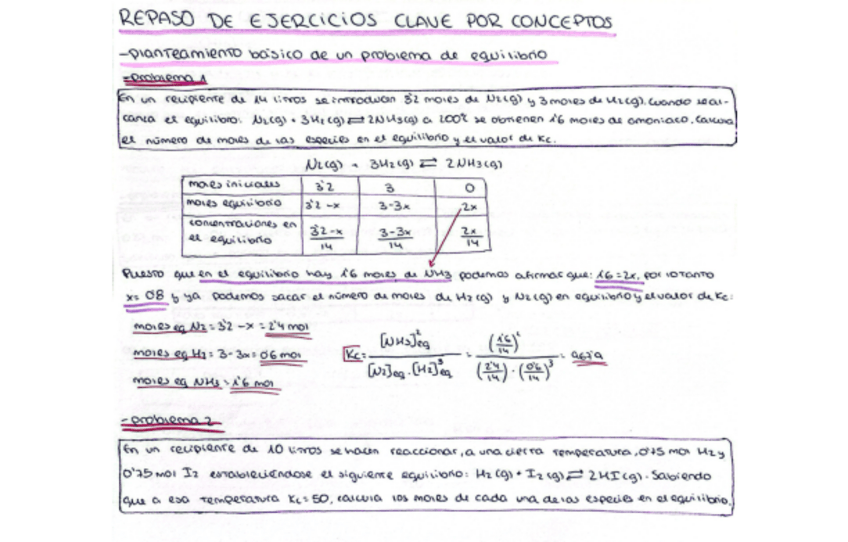 REPASO DE EJERCICIOS CLAVE POR CONCEPTOS
-planteamiento básico de un problema de equilibrio
-problema 1
En un recipiente de 14 litros se introducen 3'2 moles de N2(g) y 3 moles de H2(g). Cuando se al-
canza el equilibrio: N2(g) + 3H2(g) ⇌ 2NH3(g) a 200ºC se obtienen 1'6 moles de amoniaco. Calcula
el número de moles de las especies en el equilibrio y el valor de Kc.
N2(g) + 3H2(g) ⇌ 2NH3(g)
moles iniciales 3'2 3 0
moles equilibrio 3'2-x 3-3x 2x
concentraciones en el equilibrio 3'2-x/14 3-3x/14 2x/14
Puesto que en el equilibrio hay 1'6 moles de NH3 podemos afirmar que: 1'6=2x, por lo tanto
x= 0'8 y ya podemos sacar el número de moles de H2(g) y N2(g) en equilibrio y el valor de Kc:
moles eq N2 = 3'2-x = 2'4 mol
moles eq H2 = 3-3x = 0'6 mol
moles eq NH3 = 1'6 mol
Kc = [NH3]²eq / [N2]eq · [H2]³eq = (1'6/14)² / (2'4/14) · (0'6/14)³ =
-problema 2
En un recipiente de 10 litros se hacen reaccionar, a una cierta temperatura, 0'75 mol H2 y
0'75 mol I2 estableciéndose el siguiente equilibrio: H2(g) + I2(g) ⇌ 2HI(g). Sabiendo
que a esa temperatura Kc=50, calcula los moles de cada una de las especies en el equilibrio.